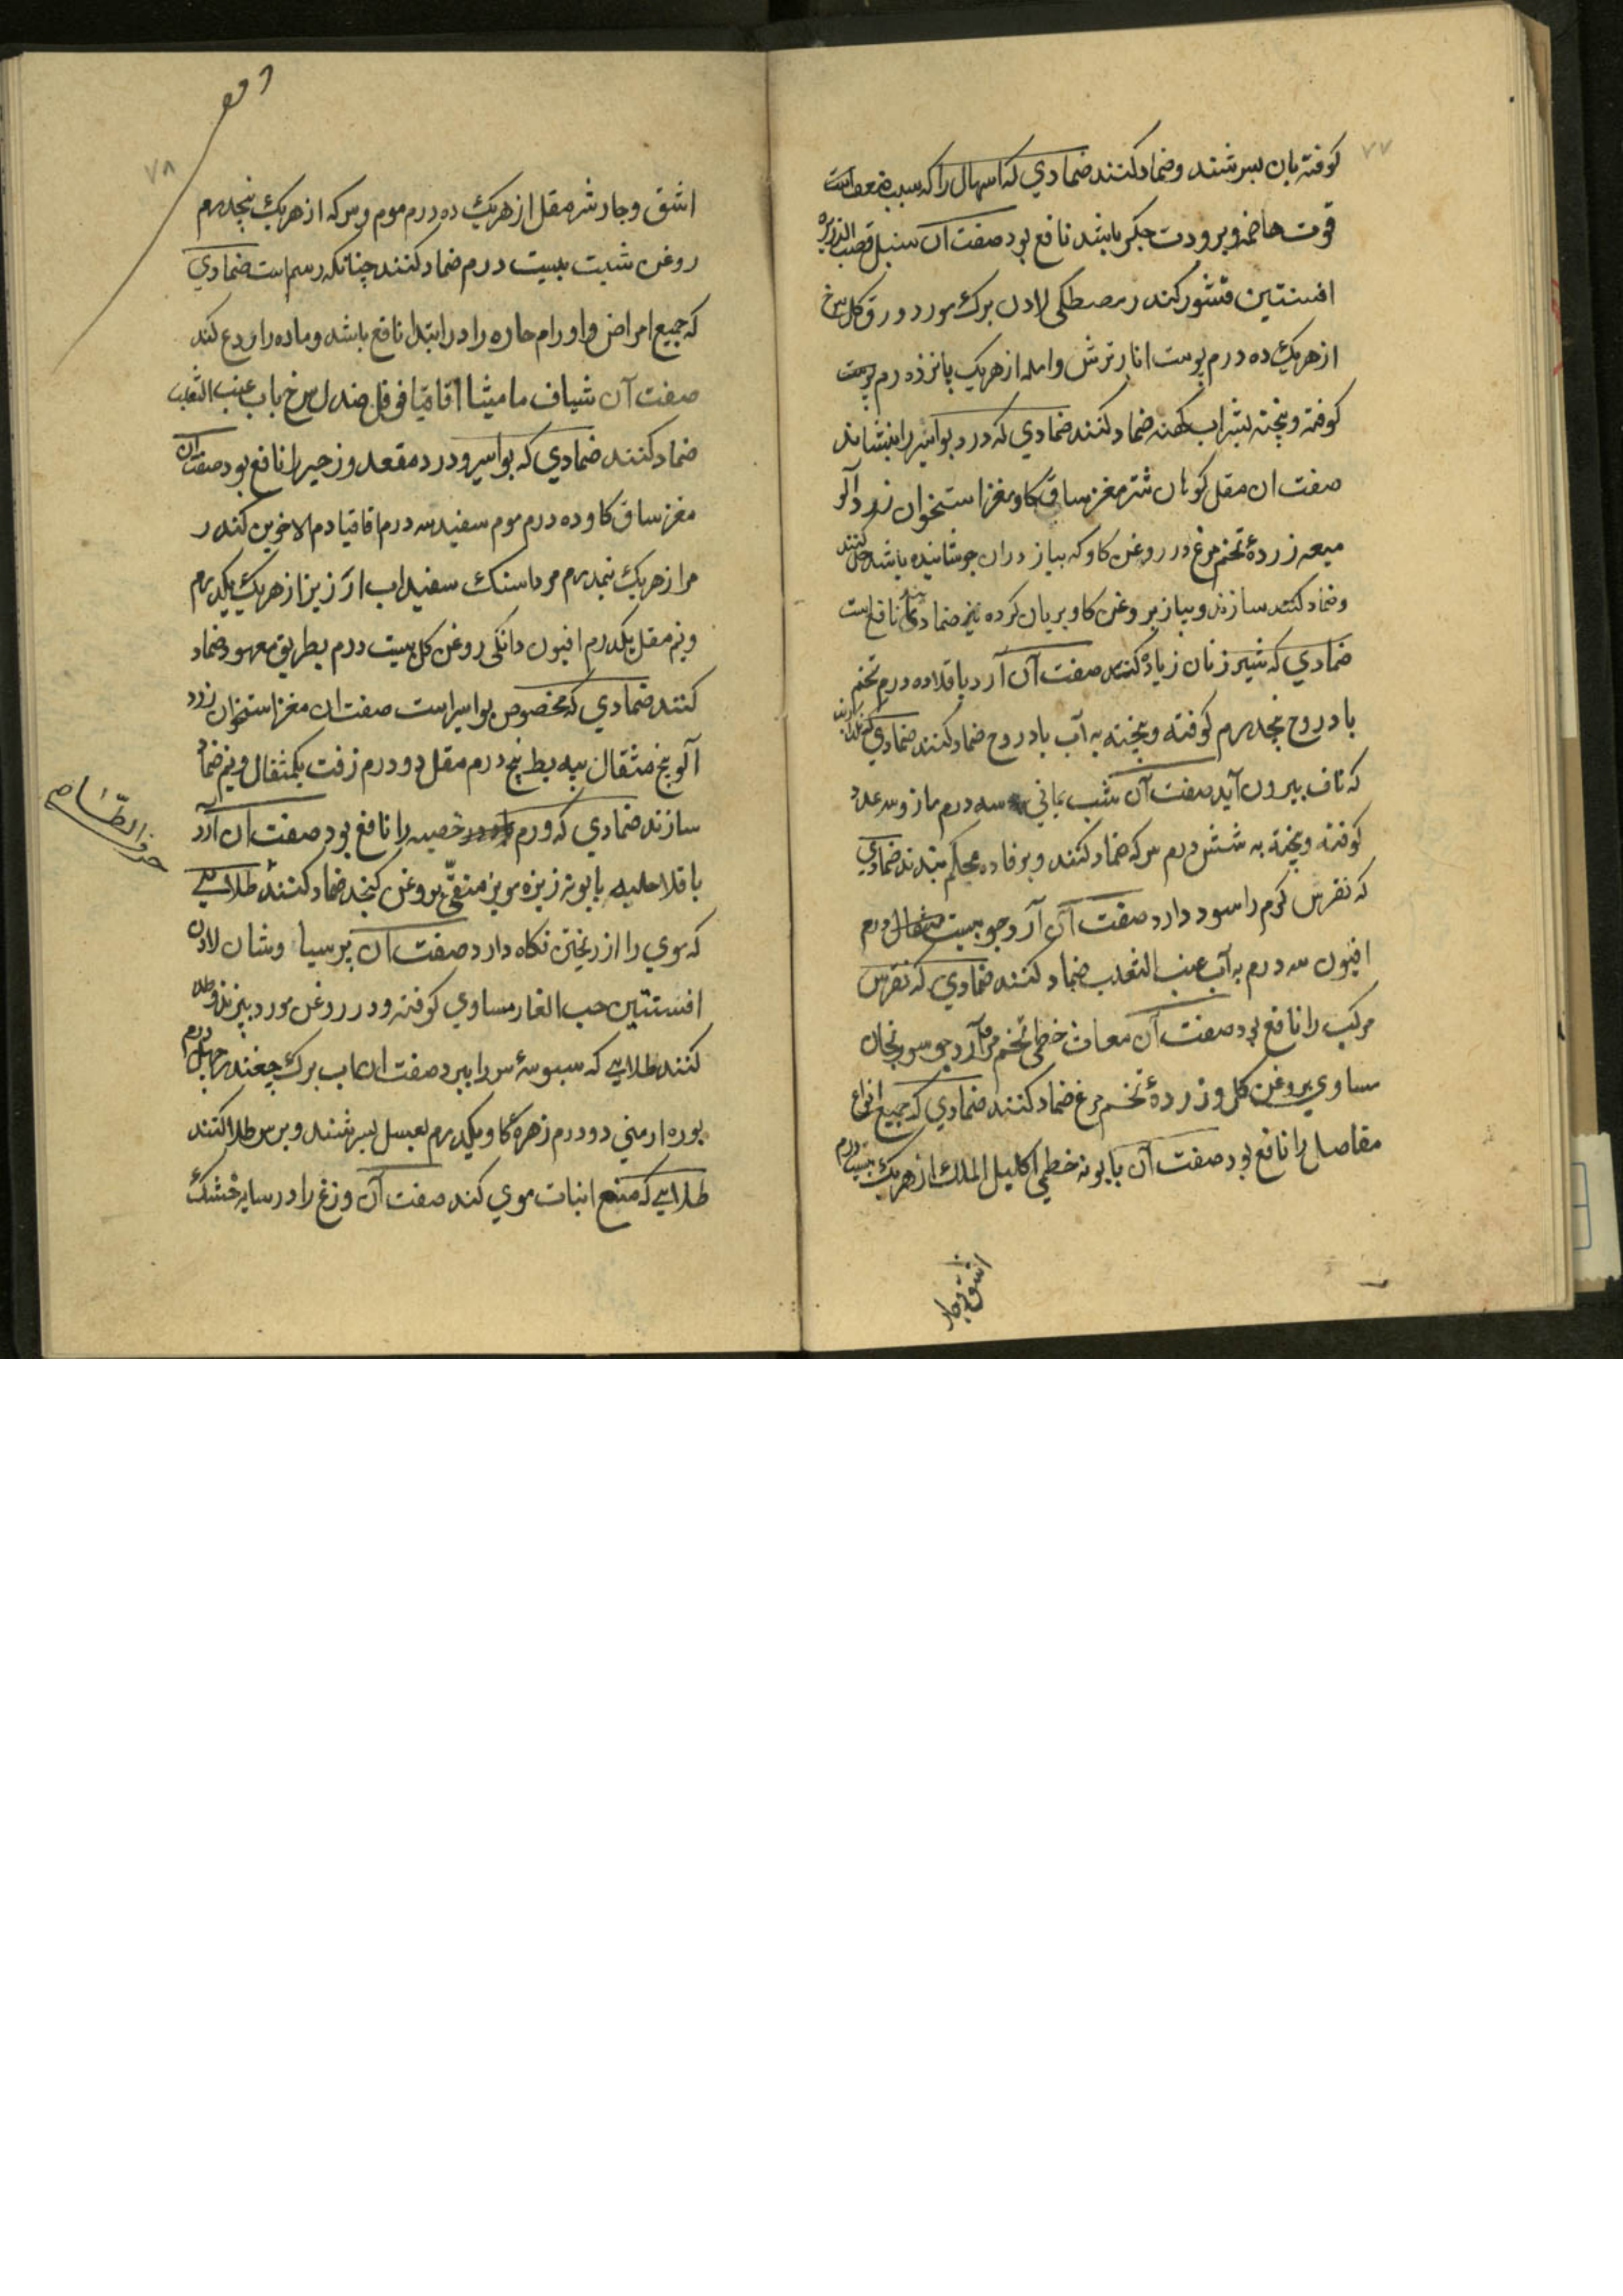 ۷۷
کوفته بان بسرشند وضماد کنند ضمادي که اسهال را که سبب ضعف است
قوت هاضمه وبرودت جکر باشد نافع بود صفت آن سنبل قصب الذریره
افسنتین قشور کندر مصطکی لادن برک مورد ورق کل سرخ
از هریک ده درم پوست انار ترش وامله از هریک پانزده درم پوست
کوفته وپخته بشراب کهنه ضماد کنند ضمادي که درد بواسیر را بنشاند
صفت ان مقل کوهان شتر مغز ساق کاو مغز استخوان زرد آلو
میعه زردهٔ تخم مرغ در روغن کاو که پیاز دران جوشانیده باشد حل کنند
وضماد کنند سازند وپیاز بروغن کاو بریان کرده نیز ضماد نافع است
ضمادي که شیر زنان زیاده کند صفت آن آرد باقلا ده درم تخم
بادروج پنجدرم کوفته وپخته به آب بادروج ضماد کنند ضمادي
که ناف بیرون آید صفت آن شب یماني سه درم مازو سه عدد
کوفته وپخته به شش درم سرکه ضماد کنند وبر فاده محکم بندند ضمادي
که نقرس کرم را سود دارد صفت آن آرد جو بیست مثقال درم
افیون سه درم به آب عنب الثعلب ضماد کنند ضمادي که نقرس
مرکب را نافع بود صفت آن معاث خطمي تخم مرو آرد جو سورنجان
مساوي بروغن کل وزردهٔ تخم مرغ ضماد کنند ضمادي که جمیع انواع
مفاصل را نافع بود صفت آن بابونه خطمي اکلیل الملك از هریک بیست درم
اشق وجا
۷۸
اشق وجاوشر مقل از هریک ده درم موم وسرکه از هریک پنجدرم
روغن شبت بیست درم ضماد کنند چنانکه رسم است ضمادي
که جمیع امراض واورام حاره را در ابتدا نافع باشد وماده را ردع کند
صفت آن شیاف مامیثا اقاقیا فوفل صندل سرخ باب عنب الثعلب
ضماد کنند ضمادي که بواسیر ودرد مقعد وزحیر را نافع بود صفت ان
مغز ساق کاو ده درم موم سفید سه درم اقاقیا دم الاخوین کندر
مر از هریک نیمدرم مرداسنك سفیداب ارزیز از هریک یکدرم
ونیم مقل یکدرم افیون دانکی روغن کل بیست درم بطریق معهود ضماد
کنند ضمادي که مخصوص بواسیر است صفت ان مغز استخوان زرد
آلو پنج مثقال پیه بط پنج درم مقل دو درم زفت یکمثقال ونیم ضماد
سازند ضمادي که ورم خصیه را نافع بود صفت ان آرد
باقلا حلبه بابونه زیره مویز منقّی بروغن کنجد ضماد کنند طلایي
که موي را از ریختن نکاه دارد صفت آن پرسیا وشان لادن
افسنتین حب الغار مساوي کوفته ودر روغن مورد بپزند وطلا
کنند طلایي که سبوسهٔ سر را ببرد صفت ان اب برک چغندر چهل درم
بوره ارمني دو درم زهرهٔ کاو یکدرم بعسل بسرشند وبر سر طلا کنند
طلایي که منع انبات موي کند صفت آن وزغ را در سایه خشک
حرف الطّاء